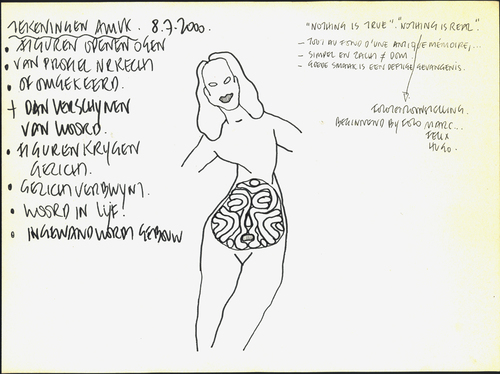 TEKENINGEN AMVK. 8.7.2000.
• FIGUREN OPENEN OGEN
• VAN PROFIEL NR RECHT
• OF OMGEKEERD.
+ DAN VERSCHYNEN
VAN WOORD.
• FIGUREN KRYGEN
GEZICHT.
• GEZICHT VERDWYNT.
• WOORD IN LYF!
• INGEWAND WORDT GEBOUW
"NOTHING IS TRUE". "NOTHING IS REAL".
- TOUT AU FOND D'UNE ANTIQUE MÉMOIRE,...
- SIMPEL EN ZACHT ≠ DOM
- GOEDE SMAAK IS EEN DEFTIGE GEVANGENIS.
BEGINNEND BY FOTO MARC...
FELIX
HUGO.